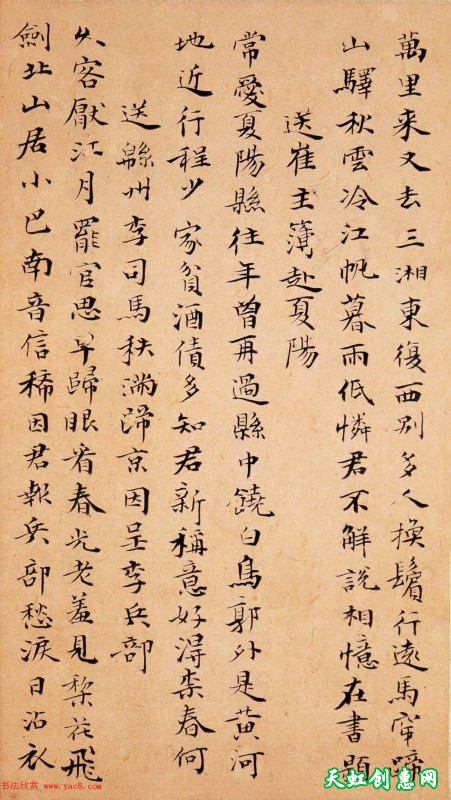 萬里来又去三湘東復西別多人換鬢行遠馬穿蹄
山驛秋雲冷江帆暮雨低憐君不解說相憶在書題
送崔主簿赴夏陽
常愛夏陽縣往年曾再過縣中饒白鳥郭外是黃河
地近行程少家貧酒債多知君新稱意好得柰春何
送緜州李司馬秩滿歸京因呈李兵部
久客厭江月罷官思早歸眼看春光老羞見棃花飛
劍北山居小巴南音信稀因君報兵部愁淚日沾衣
书法欣赏 www.yac8.com
天虹创惠网